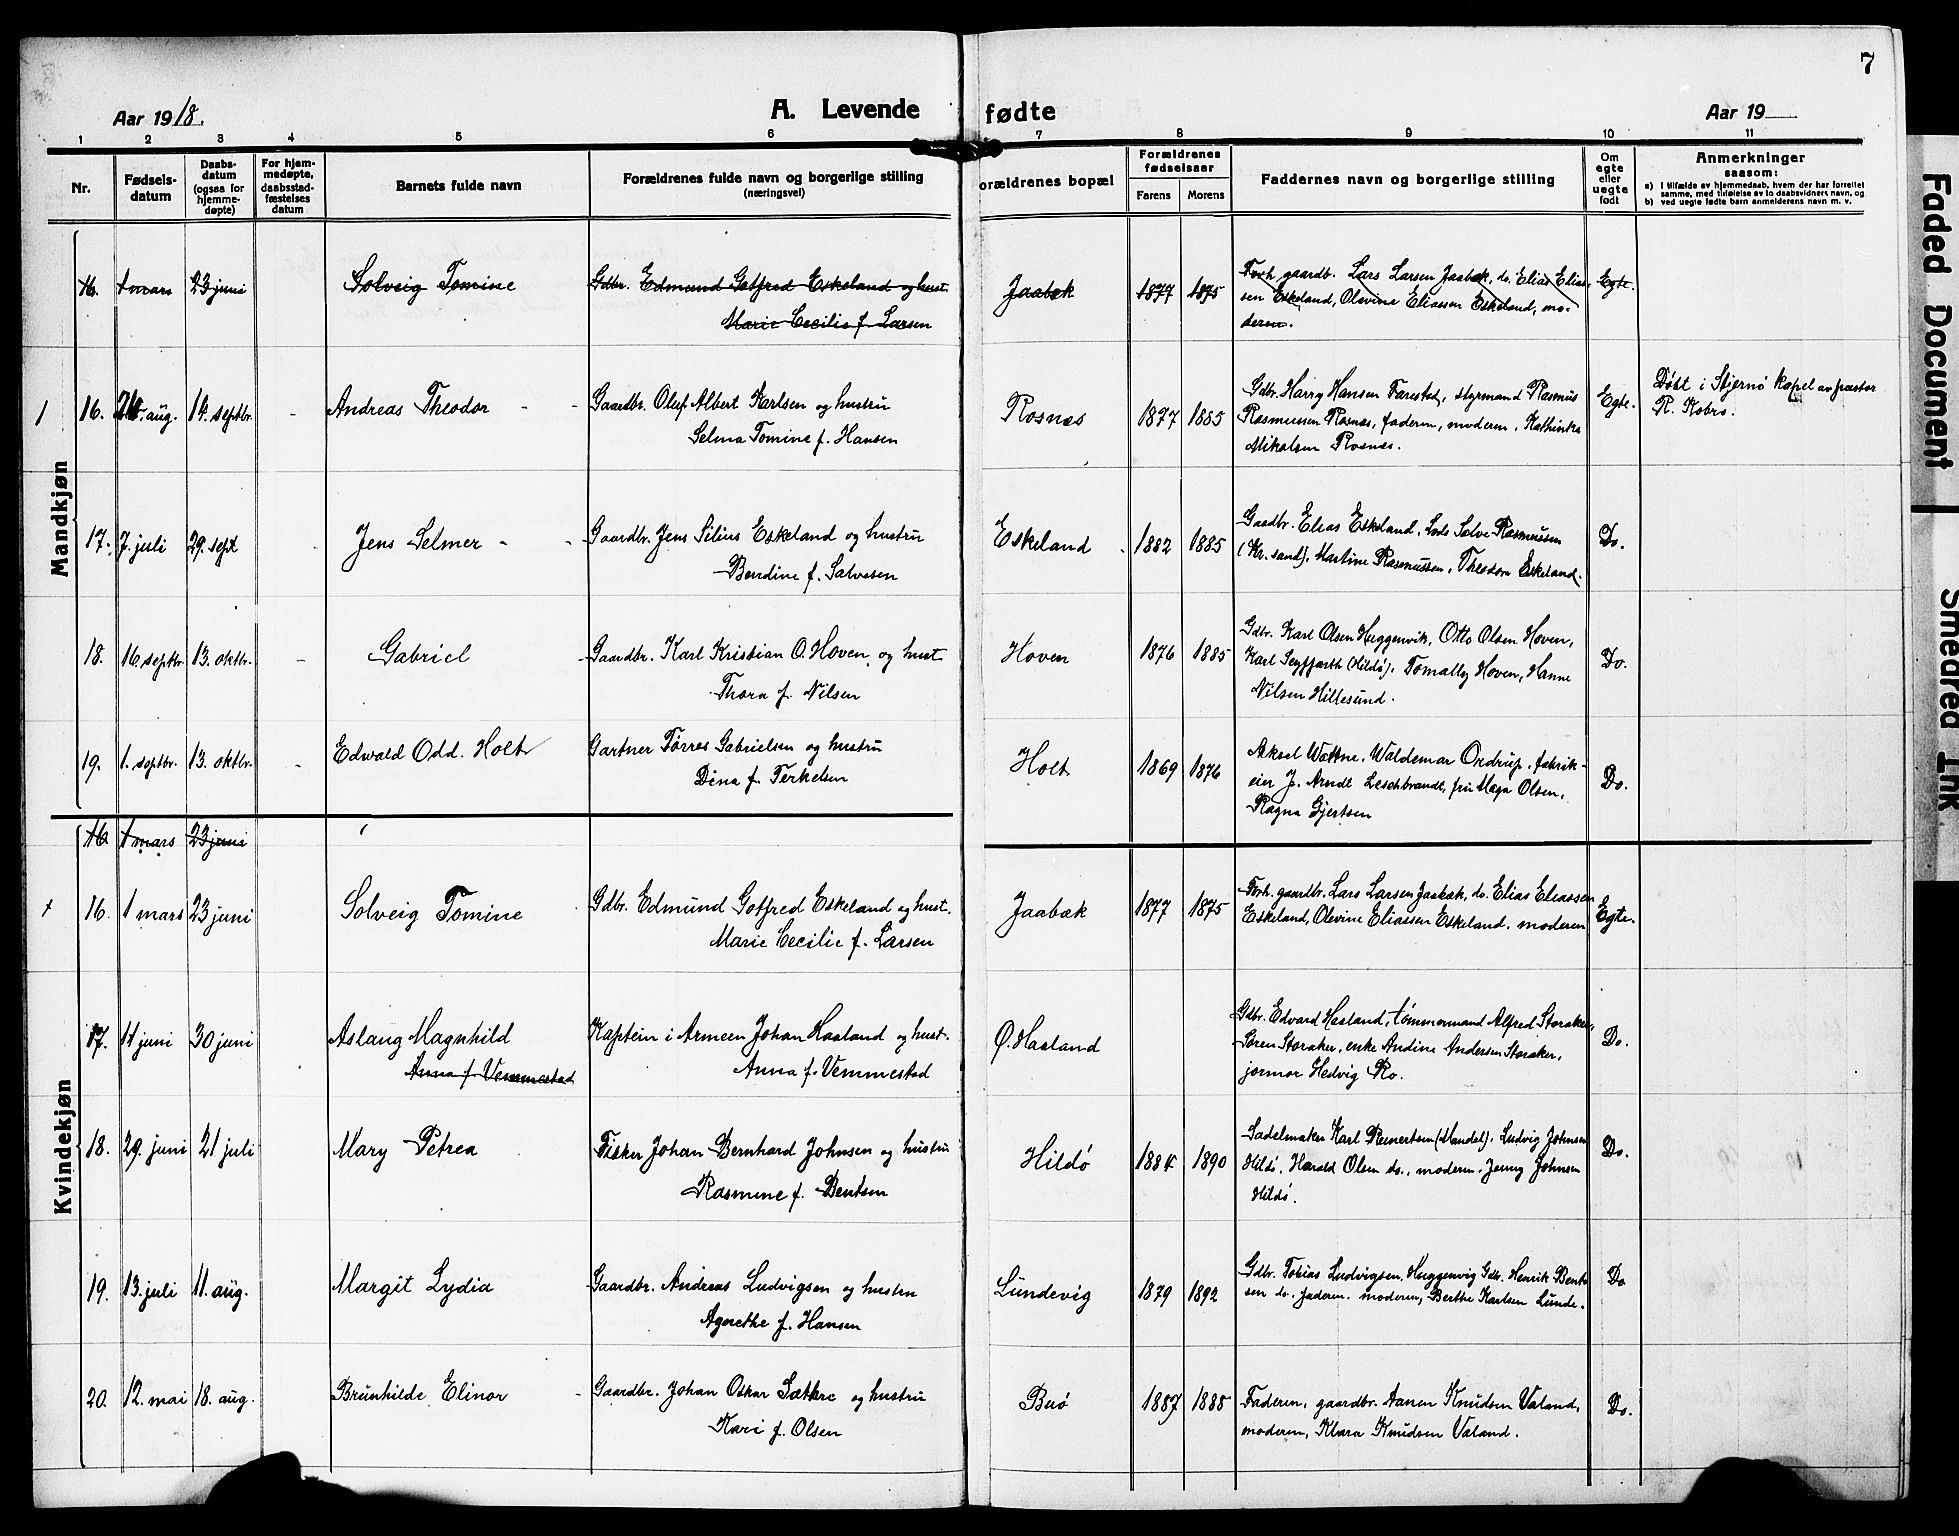 7
Aar 1918.
A. Levende fødte
Aar 19
1 2 3 4 5 6 7 8 9 10 11
Nr.
Fødsels-
datum
Daabs-
datum
(ogsaa for
hjemme-
døpte)
For hjem-
medøpte,
daabsstad-
fæstelses
datum
Barnets fulde navn
Forældrenes fulde navn og borgerlige stilling
(næringsvei)
orældrenes bopæl
Forældrenes
fødselsaar
Farens Morens
Faddernes navn og borgerlige stilling
Om
egte
eller
uegte
født
Anmerkninger
saasom:
a) i tilfælde av hjemmedaab, hvem der har forrettet
samme, med tilføielse av to daabsvidners navn, og
b) ved uegte fødte barn anmelderens navn m. v.
Mandkjøn
16. 1 mars 23 juni Solveig Tomine Gdbr. Edmund Gotfred Eskeland og hust. Jaabæk 1877 1875 Forh. gaardb. Lars Larsen Jaabæk, do. Elias Elias- Egte.
Marie Cecilie f. Larsen sen Eskeland, Olevine Eliassen Eskeland, mo-
deren.
16. aug. 14. septbr. Andreas Theodor Gaardbr. Oluf Albert Karlsen og hustru Rosnæs 1877 1885 Gdbr. Harry Hansen Farestad, styrmand Rasmus Egte. Døbt i Stjernø kapel av pastor
Selma Tomine f. Hansen Rasmussen Rosnæs, faderen, moderen, Kathinka R. Kobro.
Mikalsen Rosnæs.
17. 7. juli 29. sept Jens Selmer Gaardbr. Jens Silius Eskeland og hustru Eskeland 1882 1885 Gaardbr. Elias Eskeland, Lods Salve Rasmussen Do.
Bendine f. Salvesen (Kr.sand), Martine Rasmussen, Theodora Eskeland.
18. 16 septbr. 13. oktbr. Gabriel Gaardbr. Karl Kristian O. Hoven og hust. Hoven 1876 1885 Gdbr. Karl Olsen Huggenvik, Otto Olsen Hoven, Do.
Thora f. Nilsen Karl Seyffarth (Hildø), Hoven, Hanne
Nilsen Hillesund.
19. 1. septbr. 13. oktbr. Edwald Odd. Holt Gartner Tørres Gabrielsen og hustru Holt 1869 1876 Aksel Wattne, Waldemar Ordrup, fabrik- Do.
Dina f. Terkelsen eier J. Arndt Leschbrandt, fru Maga Olsen,
Ragna Gjertsen
Kvindekjøn
16 1 mars 23 juni
16. 1 mars 23 juni Solveig Tomine Gdbr. Edmund Gotfred Eskeland og hust. Jaabæk 1877 1875 Forh. gaardbr. Lars Larsen Jaabæk, do. Elias Eliassen Egte.
Marie Cecilie f. Larsen Eskeland, Olevine Eliassen Eskeland, moderen
17. 14 juni 30 juni Aslaug Magnhild Kaptein i Armeen Johan Haaland og hust. Ø. Haaland Gdbr. Edvard Hesland, tømmermand Alfred Storaker, Do.
Anna f. Vemmestad Anna f. Vemmestad Søren Storaker, enke Andine Andersen Storaker,
jormor Hedvig Ro.
18. 29. juni 21 juli Mary Petrea Fisker Johan Bernhard Johnsen og hustru Hildø 1884 1890 Sadelmaker Karl Reinertsen (Mandal), Ludvig Johnsen Do.
Rasmine f. Bentsen Hildø, Harald Olsen do., moderen, Jenny Johnsen
Hildø.
19. 13. juli 11. aug. Margit Lydia Gaardbr. Andreas Ludvigsen og hustru Lundevig 1879 1892 Gdbr. Tobias Ludvigsen, Huggenvig Gdbr. Henrik Bent- Do
Agnethe f. Hansen sen do. faderen, moderen, Berthe Karlsen Lunde.
20. 12. mai 18. aug. Brünhilde Elinor Gaardbr. Johan Oskar Sættre og hustru Buø 1887 1888 Faderen, gaardbr. Aanen Knudsen Valand, Do.
Kari f. Olsen moderen, Klara Knudsen Valand.
Faded Document
Smeared Ink